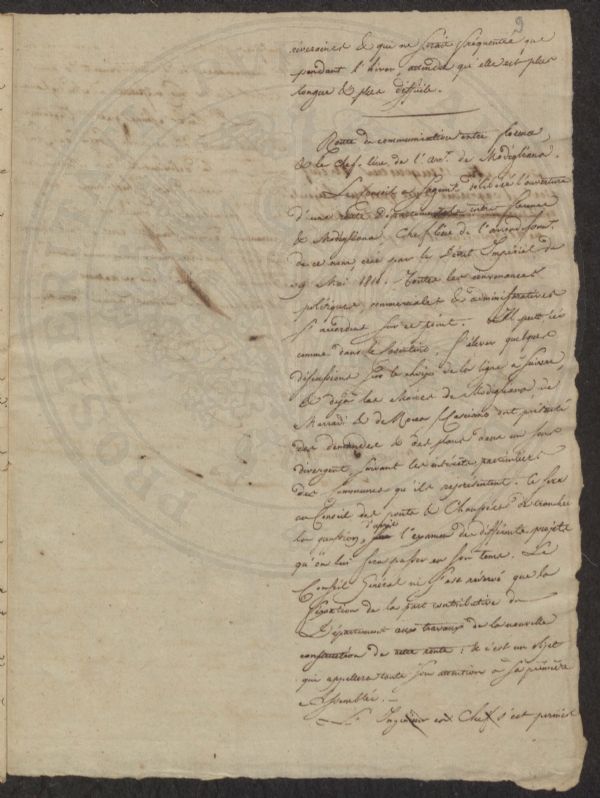 9
riveraines & que ne serait fréquentée que
pendant l'hiver, attendu qu'elle est plus
longue & plus difficile.
Route de communication entre florence
& le Chef-lieu de l'arr.t de Modigliana.
Le Conseil a sollicité l'ouverture
d'une route départementale entre florence
& Modigliana Chef lieu de l'arrondissem.t
de ce nom, créé par le Décret Impérial du
9 Mai 1811. Toutes les convenances
politiques, commerciales & administratives
s'accordent sur ce point. Il peut ici
comme dans le s'élever quelques
discussions sur le choix de la ligne à suivre,
& déjà les Maires de Modigliana, de
Marradi & de Rocca S. Casciano ont présenté
des demandes & des plans dans un sens
divergent, suivant les intérêts particuliers
des Communes qu'ils représentent. Ce sera
au Conseil des ponts & Chaussées de trancher
la question, d'après l'examen des différents projets
qu'on lui fera passer en son tems. Le
Conseil Général ne s'est réservé que la
fixation de la part contributive du
Département aux travaux de la nouvelle
construction de cette route : & c'est un objet
qui appellera toute son attention à sa première
Assemblée. —
L'Ingénieur en Chef s'est permis
PROS